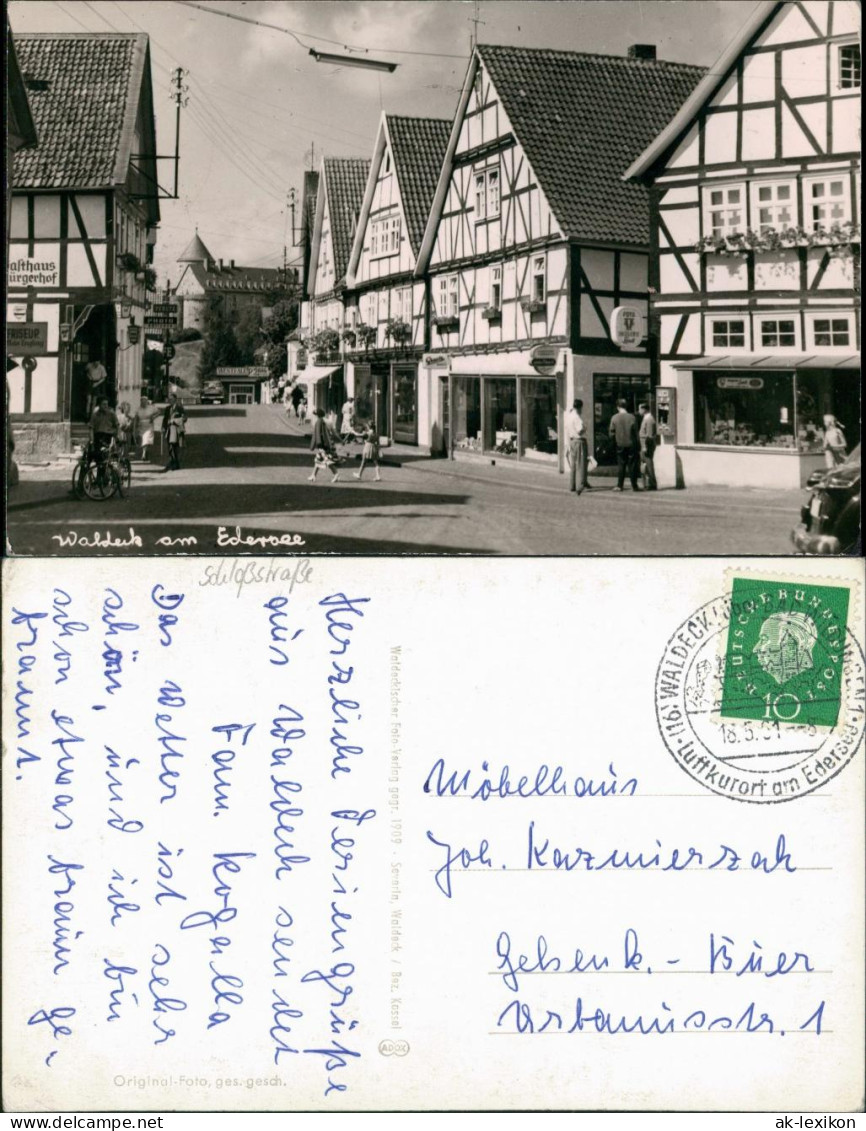 Gasthaus
Bürgerhof
FRISEUR
Waldeck am Edersee
Schloßstraße
Herzliche Feriengrüße
aus Waldeck sendet
Fam. Kogalla
Das Wetter ist sehr
schön, und ich bin
schon etwas braun ge-
brannt.
Waldeckischer Foto-Verlag gegr. 1909 · Severin, Waldeck / Bez. Kassel
ADOX
Original-Foto, ges. gesch.
DEUTSCHE BUNDESPOST
10
(16) WALDECK über BAD WILDUNGEN
18.5.61
Luftkurort am Edersee
Möbelhaus
Joh. Kazmierzak
Gelsenk. - Buer
Urbanusstr. 1
ak-lexikon